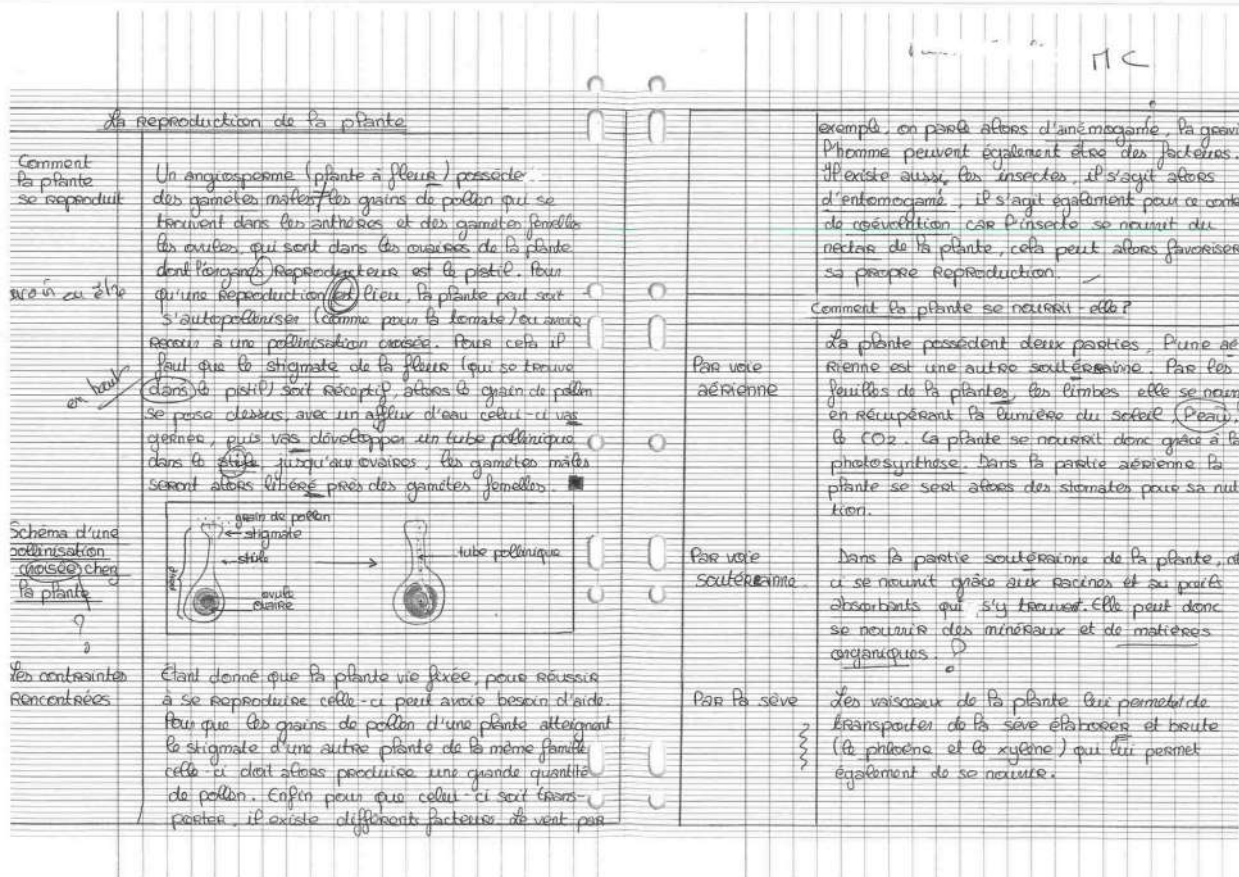 MC
La reproduction de la plante
Comment
la plante
se reproduit
Un angiosperme (plante à fleur) possède
des gamètes males les grains de pollen qui se
trouvent dans les anthères et des gamétes femelles
les ovules, qui sont dans les ovaires de la plante
dont l'organe reproducteur est le pistil. Pour
qu'une reproduction est lieu, la plante peut soit
s'autopolliniser (comme pour la tomate) ou avoir
recour à une pollinisation croisée. Pour cela il
faut que le stigmate de la fleur (qui se trouve
dans le pistil) soit réceptif, alors le grain de pollen
se pose dessus, avec un afflux d'eau celui-ci vas
germée, puis vas développer un tube pollinique
dans le stile jusqu'aux ovaires, les gamètes mâles
seront alors libéré près des gamétes femelles.
en haut
Schéma d'une
pollinisation
croisée chez
la plante
?
grain de pollen
stigmate
stile
ovule
ovaire
tube pollinique
Les contraintes
rencontrées
Étant donné que la plante vie fixée, pour réussir
à se reproduire celle-ci peut avoir besoin d'aide.
Pour que les grains de pollen d'une plante atteignent
le stigmate d'une autre plante de la même famille
celle-ci doit alors produire une grande quantité
de pollen. Enfin pour que celui-ci soit trans-
porter, il existe différents facteurs. Le vent par
exemple, on parle alors d'anémogame, la gravi
l'homme peuvent également être des facteurs.
Il existe aussi, les insectes, il s'agit alors
d'entomogame, il s'agit également pour ce
de coévolution car l'insecte se nourrit du
nectar de la plante, cela peut alors favoriser
sa propre reproduction.
Comment la plante se nourrit-elle?
Par voie
aérienne
La plante possèdent deux parties, l'une aé
rienne est une autre soutérainne. Par les
feuilles de la plantes, les limbes elle se nourr
en récupérant la lumière du soleil, l'eau,
le CO2. La plante se nourrit donc grâce à la
photosynthèse. Dans la partie aérienne la
plante se sert alors des stomates pour sa nut
tion.
Par voie
soutérainne
Dans la partie soutérainne de la plante,
ci se nourrit grâce aux racines et au poils
absorbants qui s'y trouvent. Elle peut donc
se nourrir des minéraux et de matières
organiques. ?
Par la sève
Les vaisseaux de la plante lui permet de
transporter de la sève élaborer et brute
(le phloène et le xylène) qui lui permet
également de se nourrir.